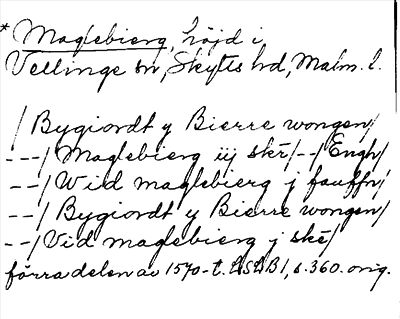 * Maglebierg, höjd i
Vellinge sn, Skytts hd, Malm. l.
/ Bygiordt y Bierre wongen/
---/ Maglebierg iij skr/--/Engh/
--/ Wid maglebierg j fauffn/
--/ Bygiordt y Bierre wongen/
--/ Vid maglebierg j ske/
förra delen av 1570-t. LSLB1, s. 360. orig.